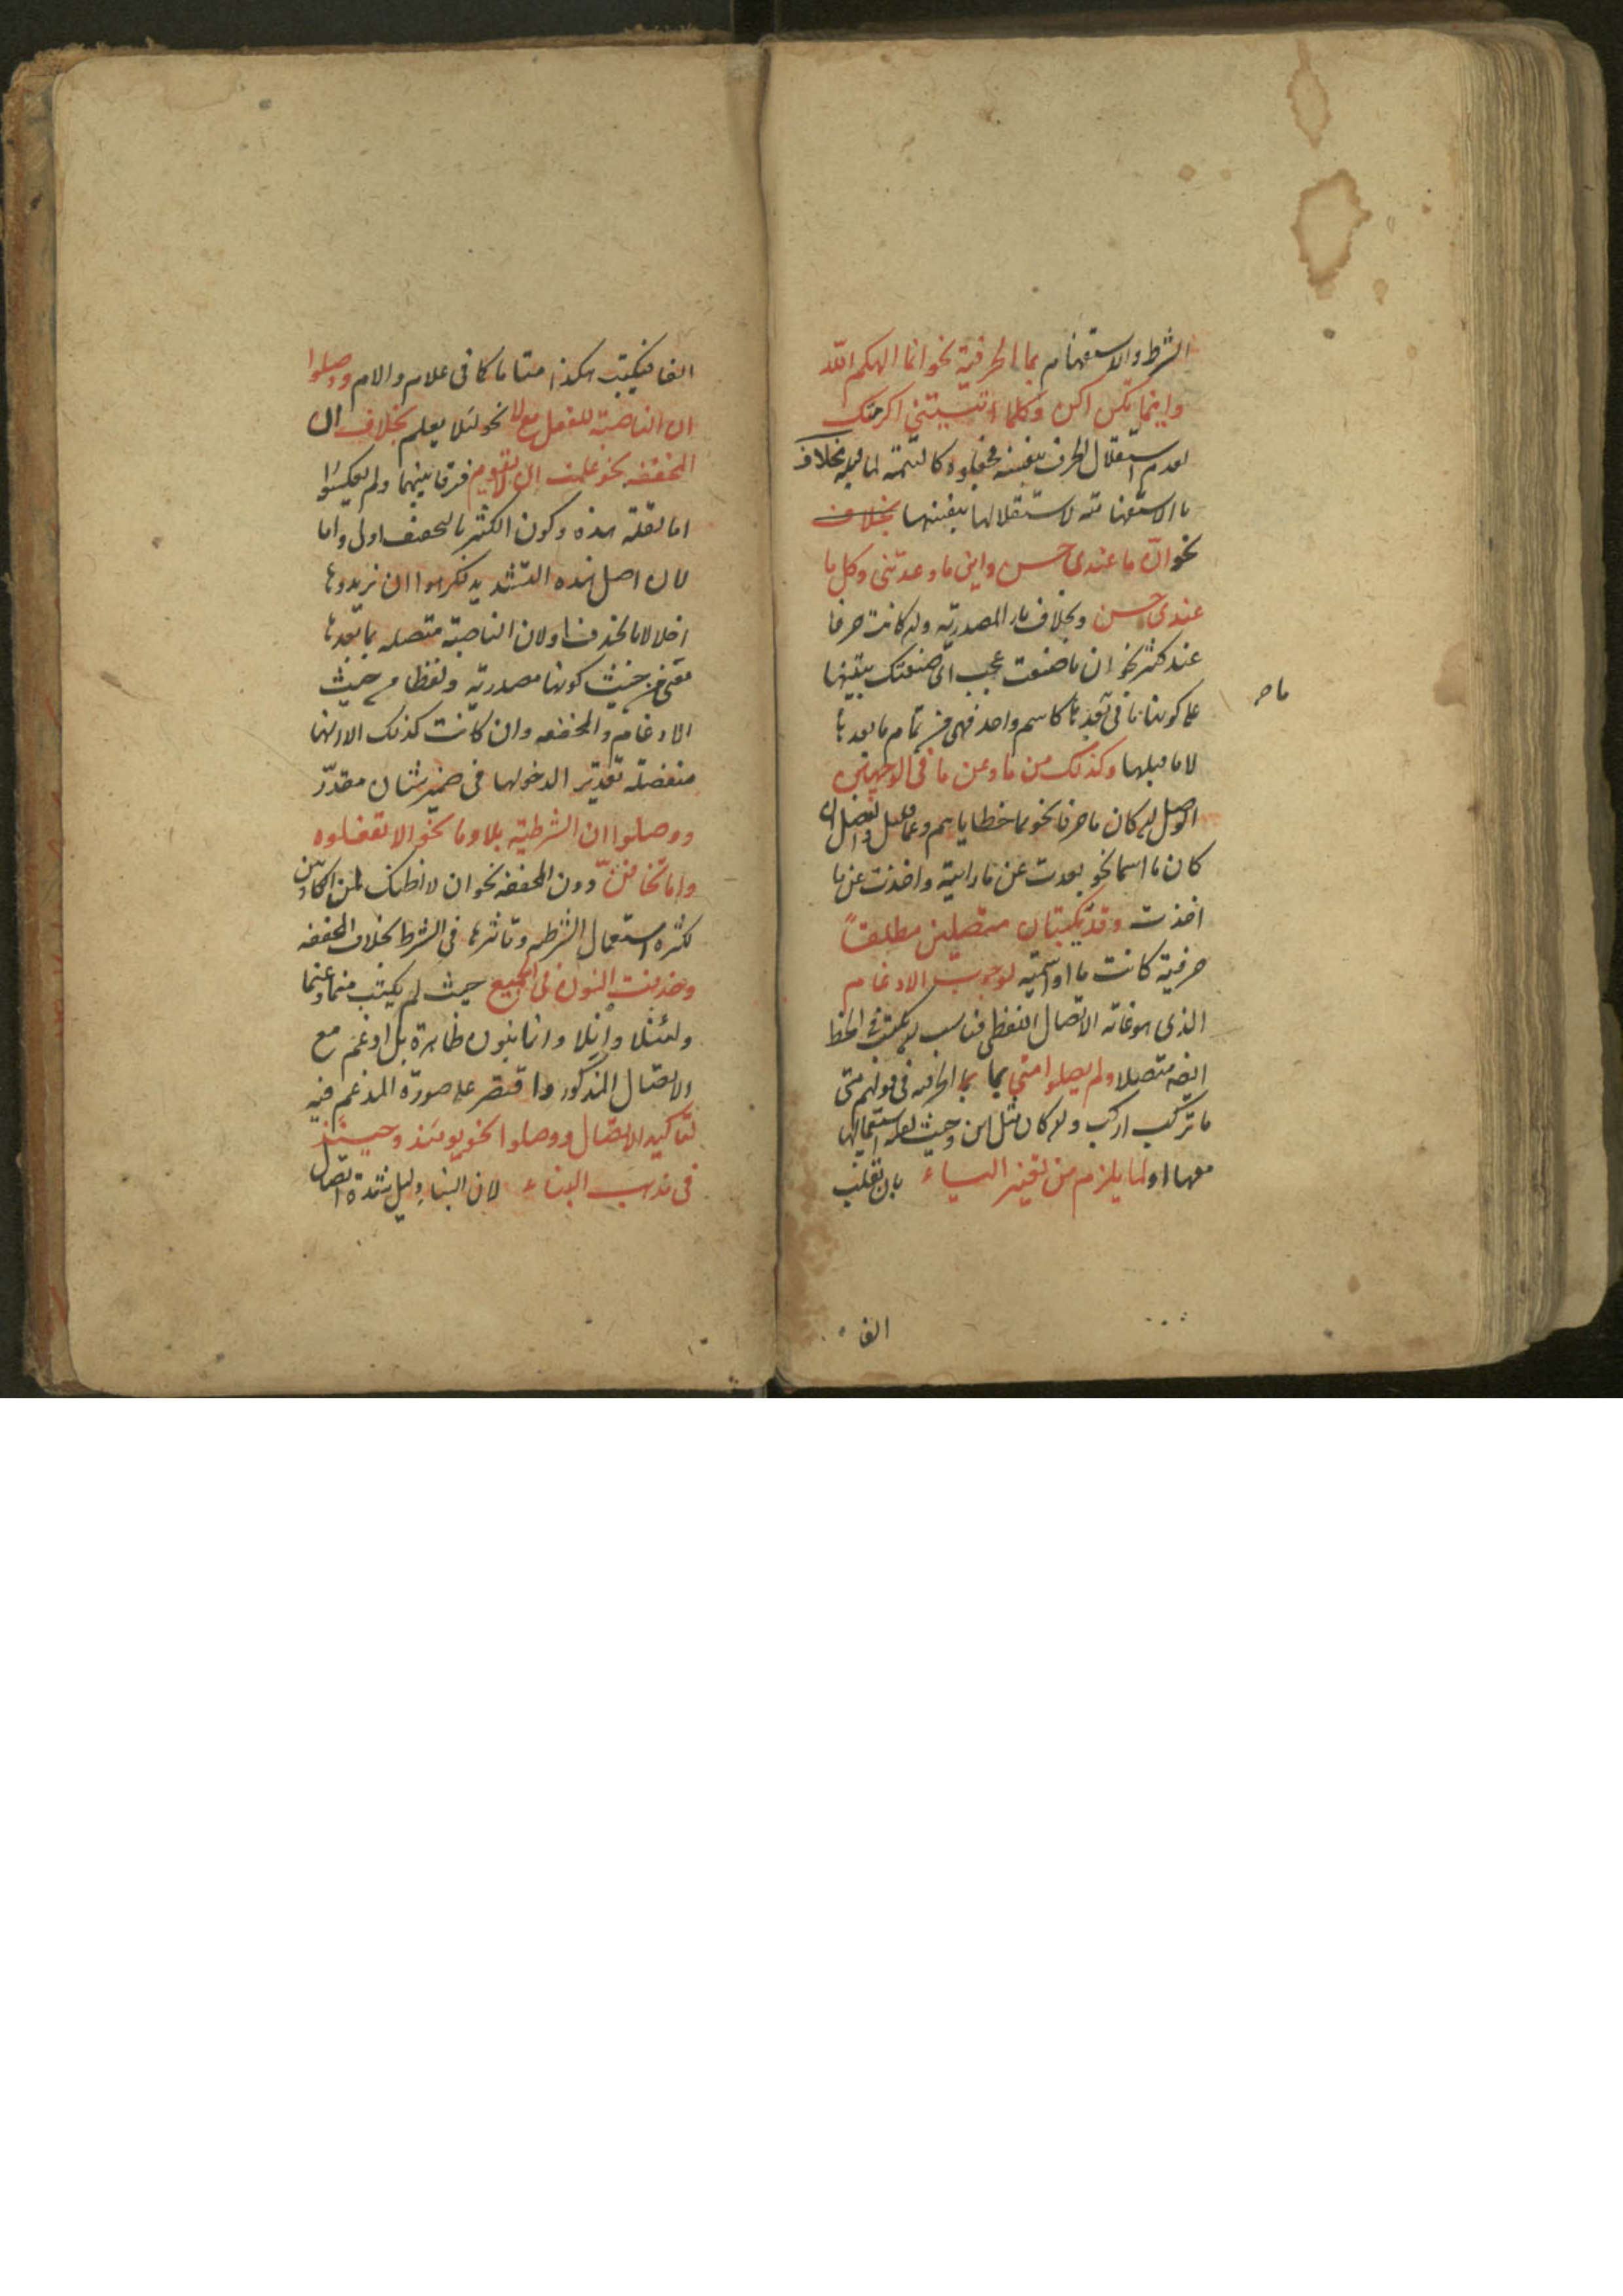 الشرط والاستفهام بما الحرفية نحو انما الهكم الله
واينما تكن اكن وكلما اتيتني اكرمتك
لعدم استقلال الحرف بنفسه فجعلوه كالتتمة لما قبله بخلاف
ما الاستفهامية لاستقلالها بنفسها بخلاف
نحو ان ما عندي حسن واين ما وعدتني وكل ما
عندي حسن وبخلاف ما المصدرية وان كانت حرفا
عند كثير نحو ان ما صنعت عجب اي صنعتك بينها
على كونها ما في بعدها كاسم واحد فهي من تمام ما بعدها
ما ص
لا ما قبلها وكذلك من ما وعن ما في الوجهين
الوصل ان كان ما حرفا نحو مما خطاياهم وعما قليل والفصل ان
كان ما اسما نحو بعدت عن ما رايته واخذت من ما
اخذت وقد يكتبان متصلين مطلقاً
حرفية كانت ما او اسمية لوجوب الادغام
الذي هو غاية الاتصال اللفظي فناسب ان يكتب في الخط
ايضه متصلا ولم يصلوا متى بما بما الحرفية في قولهم متى
ما تركب اركب وان كان مثل اين وحيث لقلة استعمالها
معها او لما يلزم من تغير الياء بان تقلب
الفا
الفا فيكتب هكذا متاما كما في علام والام ووصلوا
ان الناصبة للفعل مع لا نحو لئلا يعلم بخلاف ان
المخففه نحو علمت ان لا تقوم فرقا بينهما ولم يعكسوا
اما لقلة هذه وكون الكثير بالتخفيف اولى واما
لان اصل هذه التشديد فكرهوا ان يزيدوها
اخلالا بالحذف او لان الناصبة متصله بما بعدها
معنى من حيث كونها مصدرية ولفظا من حيث
الادغام والمخففه وان كانت كذلك الا انها
منفصلة تقدير الدخولها في ضمير شان مقدّر
ووصلوا ان الشرطية بلا وما نحو الا تفعلوه
واما تخافنّ دون المخففه نحو ان لا اظنك لمن الكاذبين
لكثرة استعمال الشرطيه وتاثيرها في الشرط بخلاف المخففه
وحذفت النون في الجميع حيث لم يكتب منما وعنما
ولئنلا وانلا وانما بنون ظاهرة بل ادغم مع
الاتصال المذكور واقتصر على صورة المدغم فيه
لتاكيد الاتصال ووصلوا نحو يومئذ وحينئذ
في مذهب البناء لان البناء دليل شدة اتصال